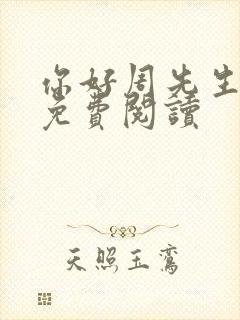 你好周先生
免費閱讀
天照玉鸞